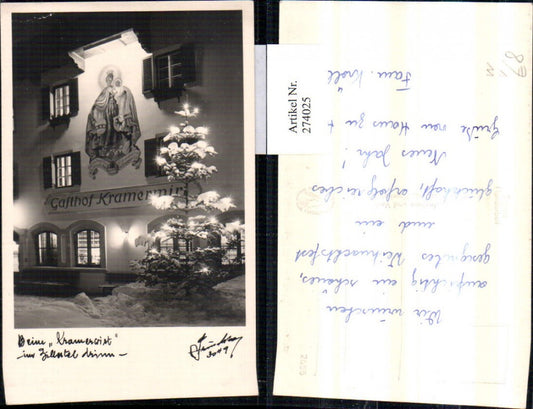 Gasthof Kramerwirt
Beim „Kramerwirt"
im Zillertal drinn—
3049
Artikel Nr.
274025
Wir wünschen
aufrichtig ein schönes,
gesegnetes Weihnachtsfest
und ein
glückhaft, erfolgreiches
Neues Jahr!
Grüße von Haus zu
Fam. Kroll